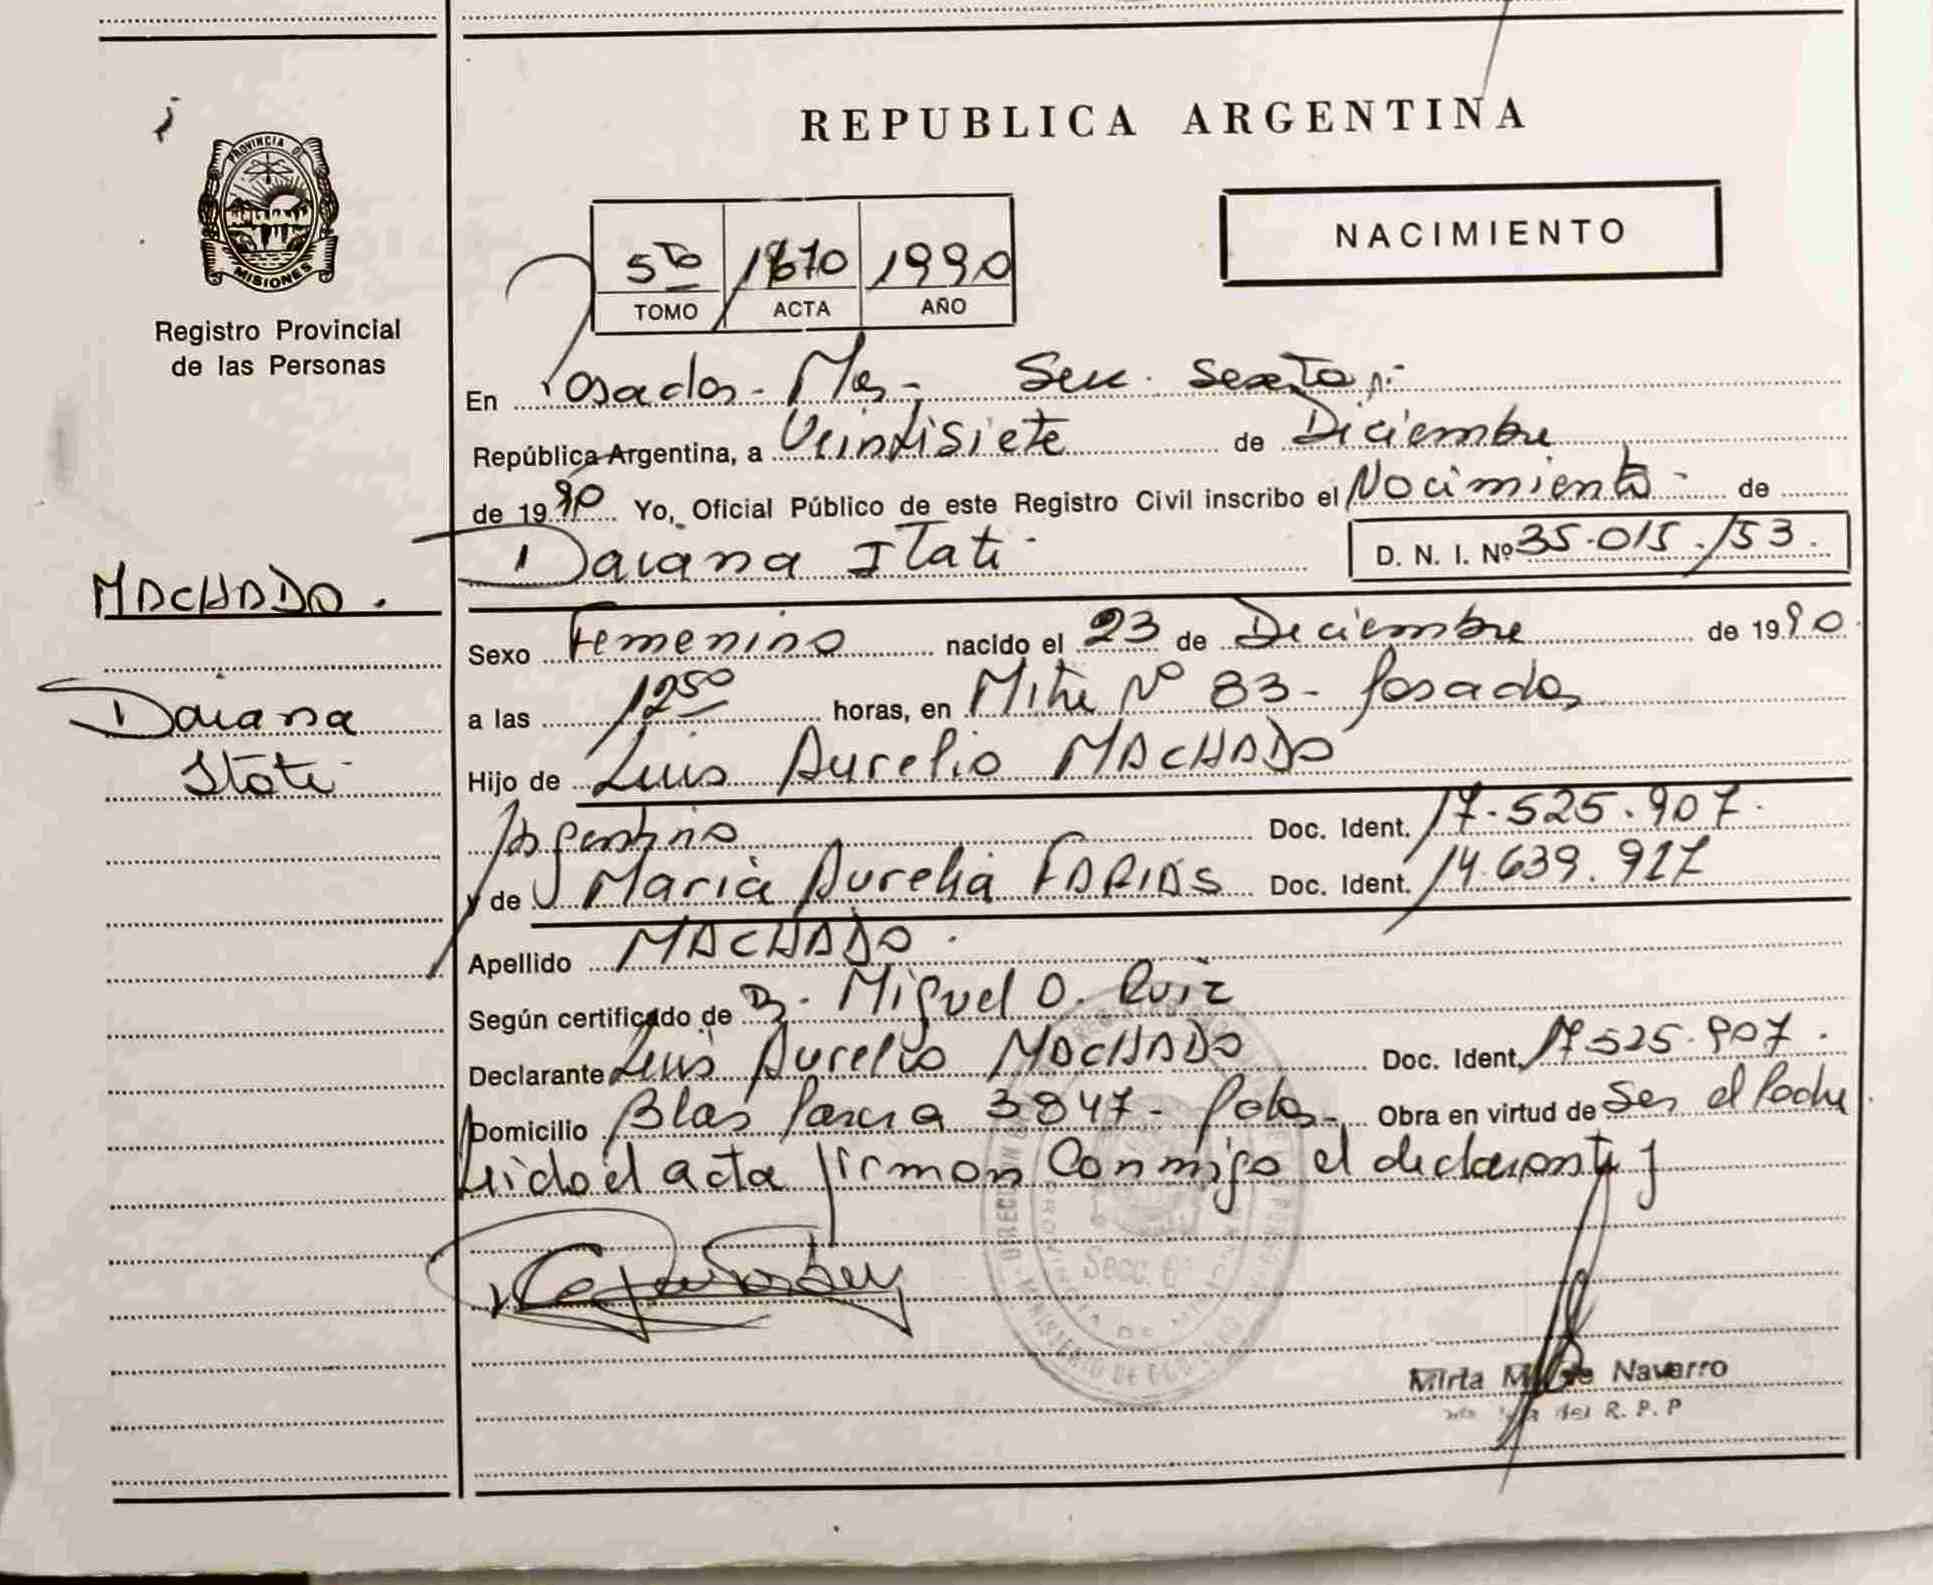 REPUBLICA ARGENTINA
PROVINCIA DE
MISIONES
Registro Provincial
de las Personas
NACIMIENTO
5to 1670 1990
TOMO ACTA AÑO
En Posadas - Mes - Secc. Sexta
República Argentina, a Veintisiete de Diciembre
de 1990 Yo, Oficial Público de este Registro Civil inscribo el Nacimiento - de
Daiana Itati - D. N. I. Nº 35.015.153.
MACHADO.
Daiana
Itati -
Sexo Femenino nacido el 23 de Diciembre de 1990.
a las 12 50 horas, en Mitre Nº 83 - Posadas
Hijo de Luis Aurelio MACHADO
Argentino Doc. Ident. 17.525.907.
y de Maria Aurelia FARIAS Doc. Ident. 14.639.927
Apellido MACHADO.
Según certificado de Dr. Miguel O. Ruiz
Declarante Luis Aurelio MACHADO Doc. Ident. 17.525.907.
Domicilio Blas Parera 3847 - Pdas - Obra en virtud de Ser el Padre
Leido el acta firman conmigo el declarante y
Secc. 6
Mirta Navarro
del R. P. P